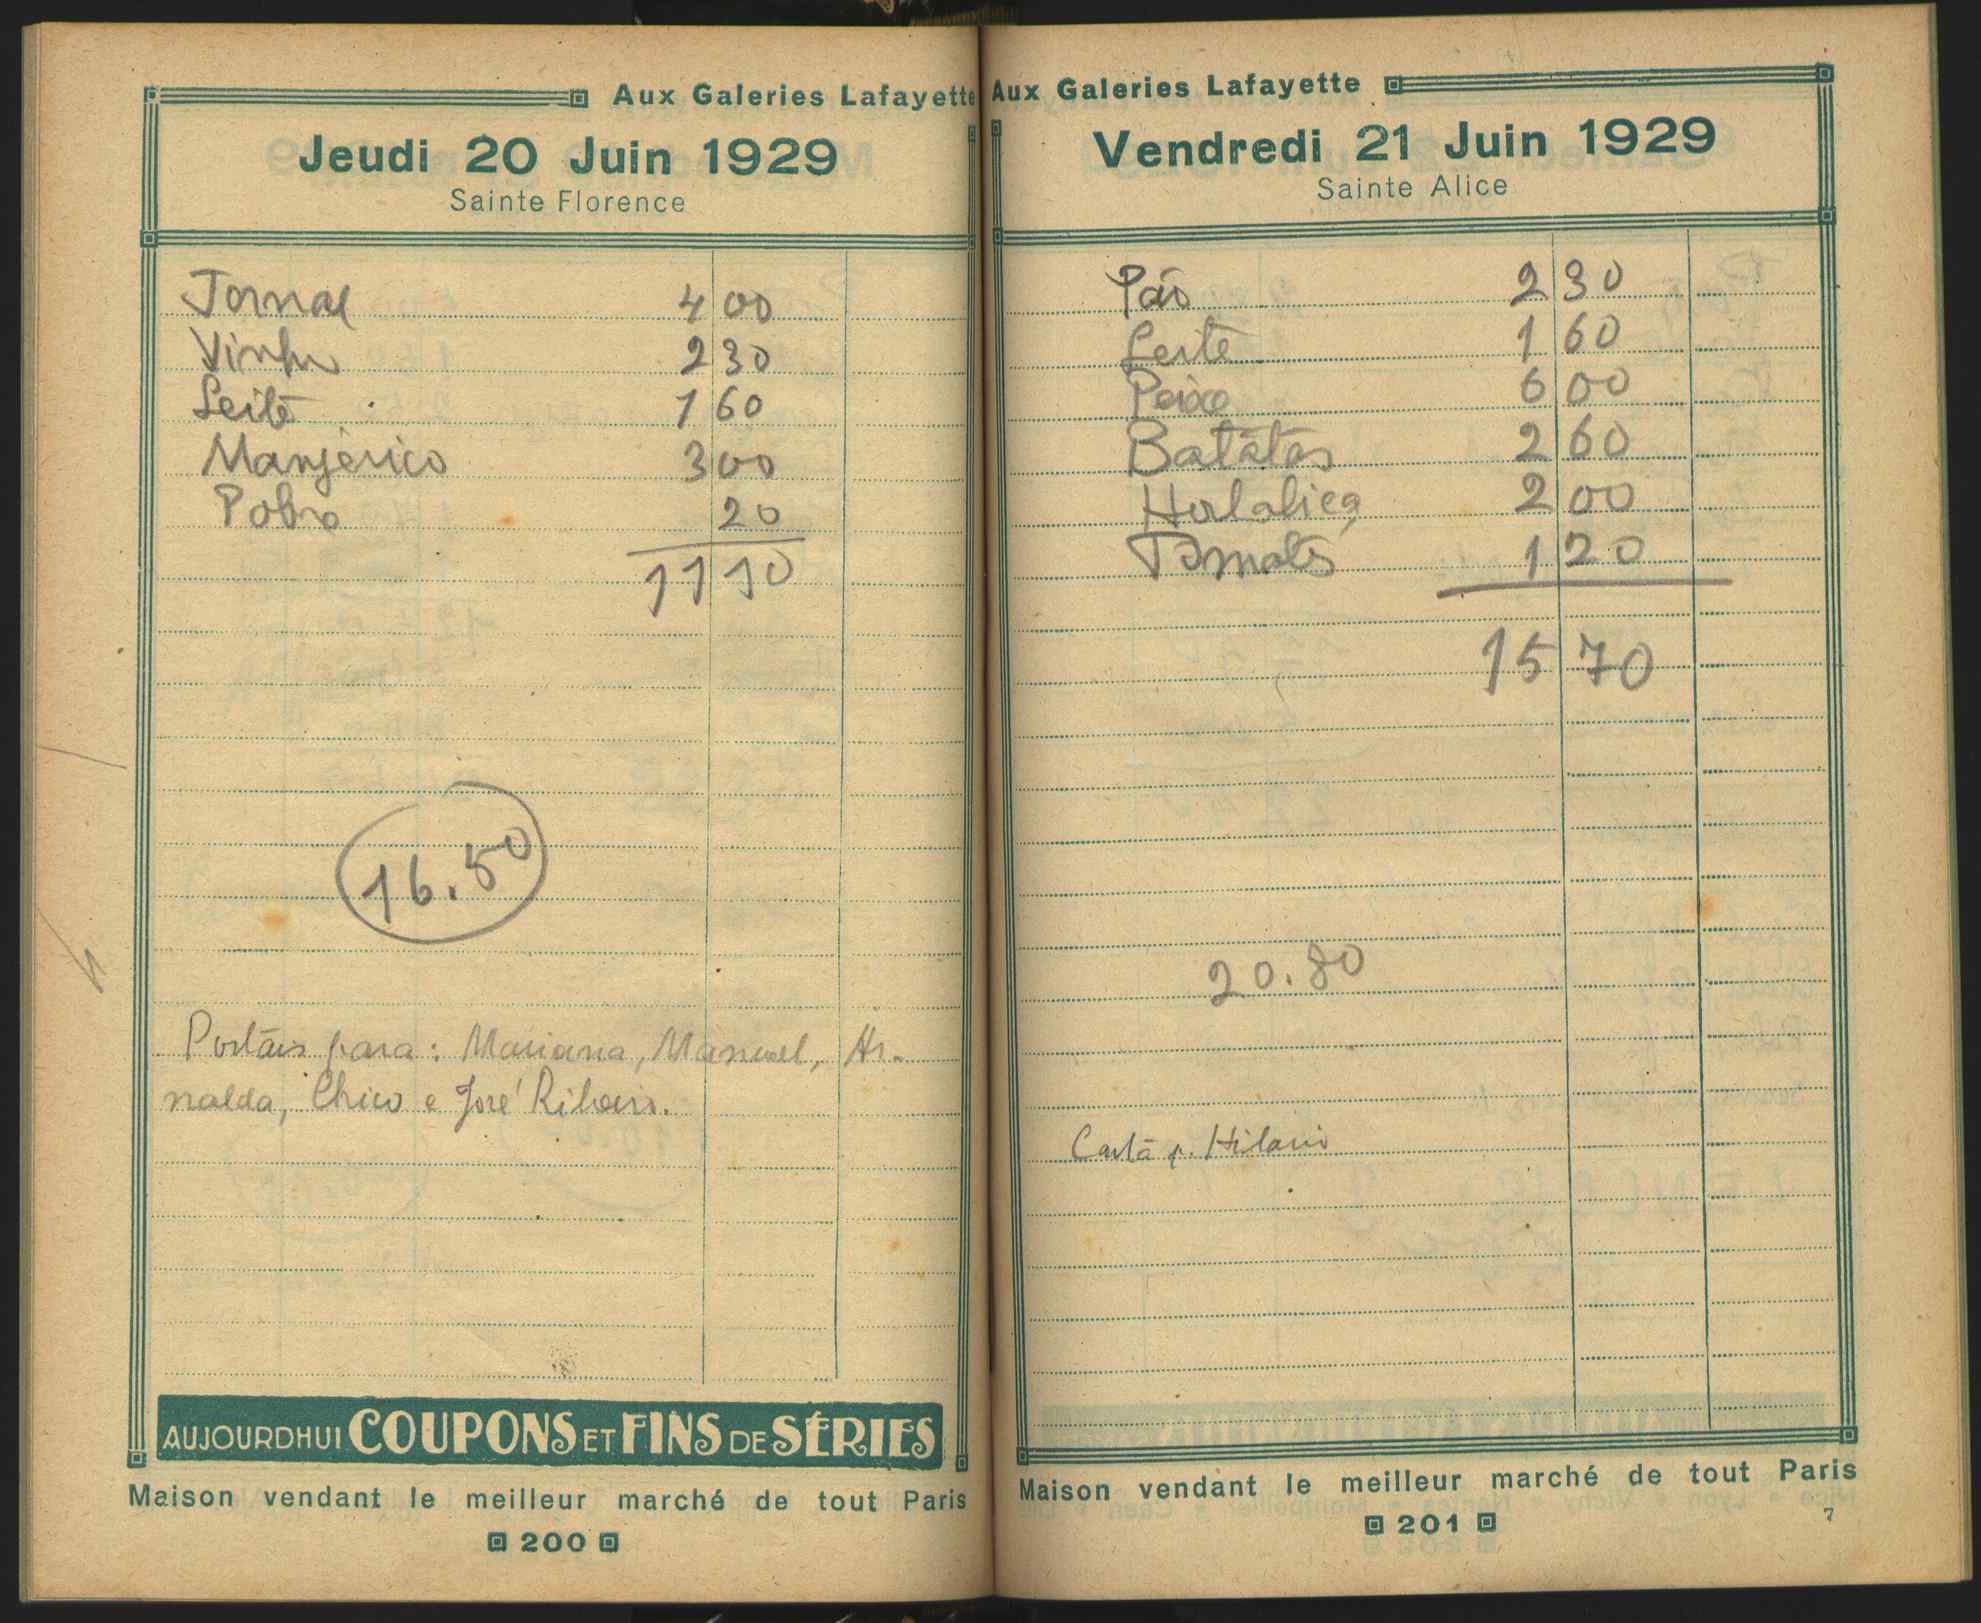 Aux Galeries Lafayette
Jeudi 20 Juin 1929
Sainte Florence
Jornal 4 00
Vinho 2 30
Leite 1 60
Manjerico 3 00
Pobre 20
11 10
16.50
Postais para: Mariana, Manuel, Ar-
nalda, Chico e José Ribeiro.
AUJOURDHUI COUPONS ET FINS DE SÉRIES
Maison vendant le meilleur marché de tout Paris
200
Aux Galeries Lafayette
Vendredi 21 Juin 1929
Sainte Alice
Pão 2 30
Leite 1 60
Peixe 6 00
Batatas 2 60
Hortaliça 2 00
Tomates 1 20
15 70
20.80
Carta p. Hilario
Maison vendant le meilleur marché de tout Paris
201
7